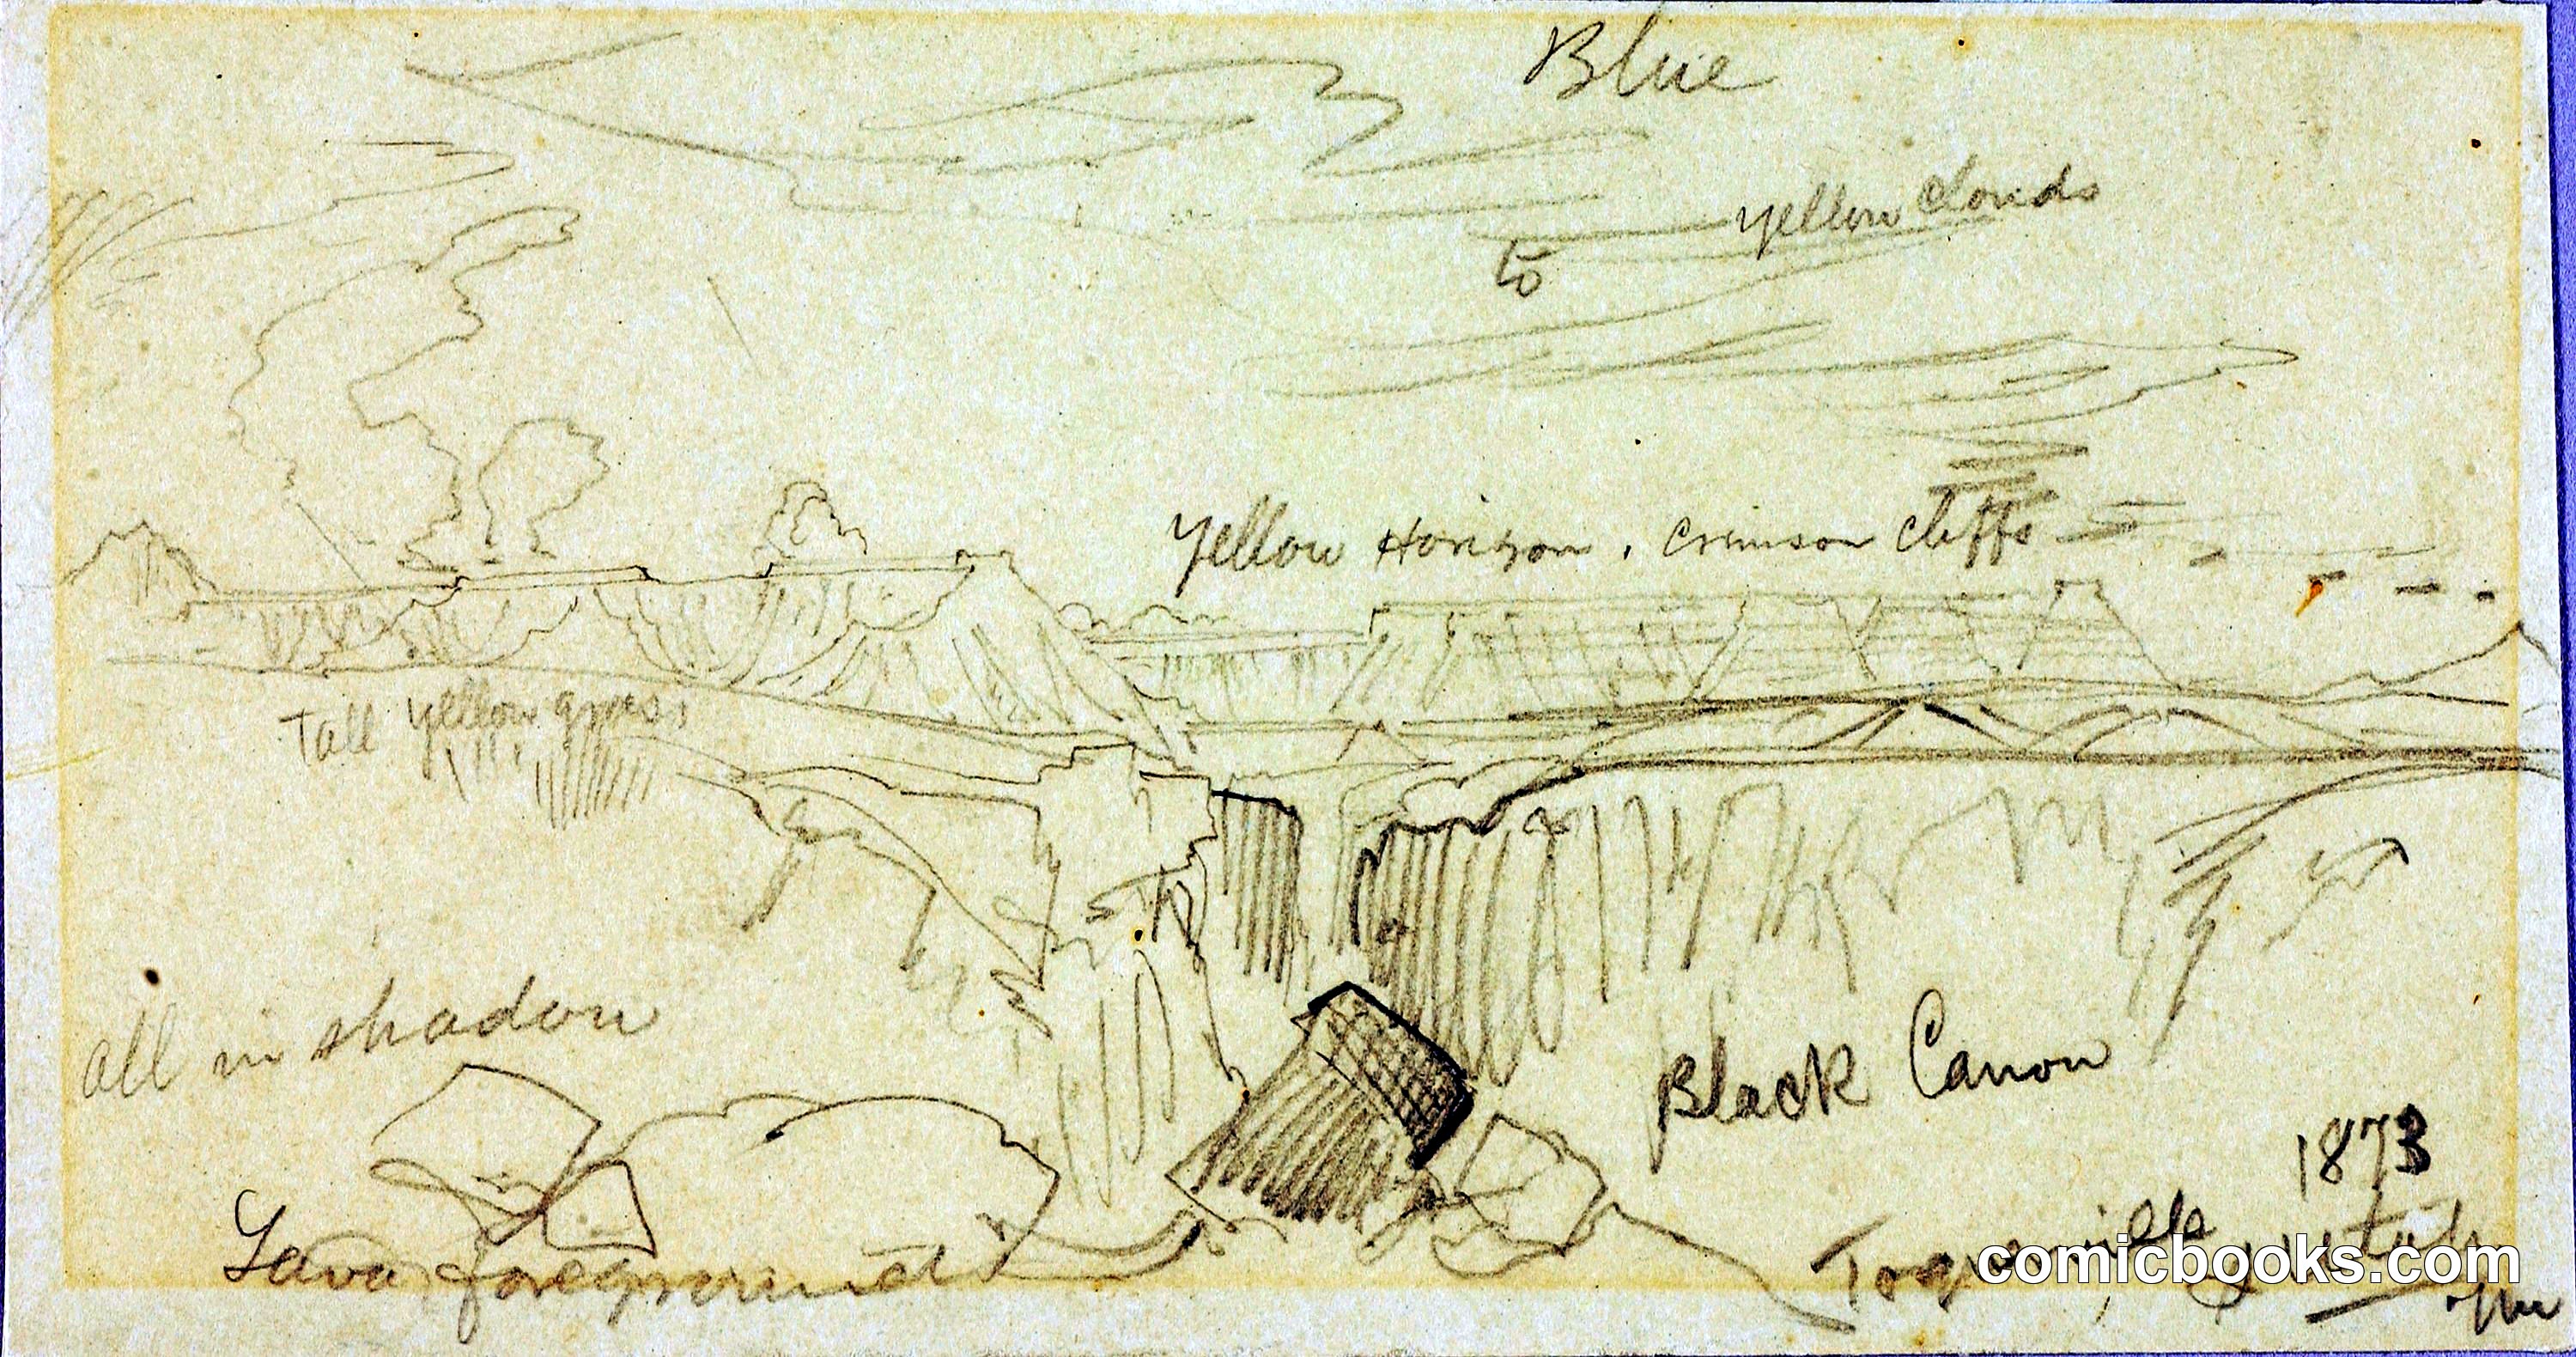 Blue
yellow clouds
to
Yellow Horizon, Crimson Cliffs
Tall yellow grass
all in shadow
Black Canon
1873
Lava foreground
Toquerville, Utah
comicbooks.com